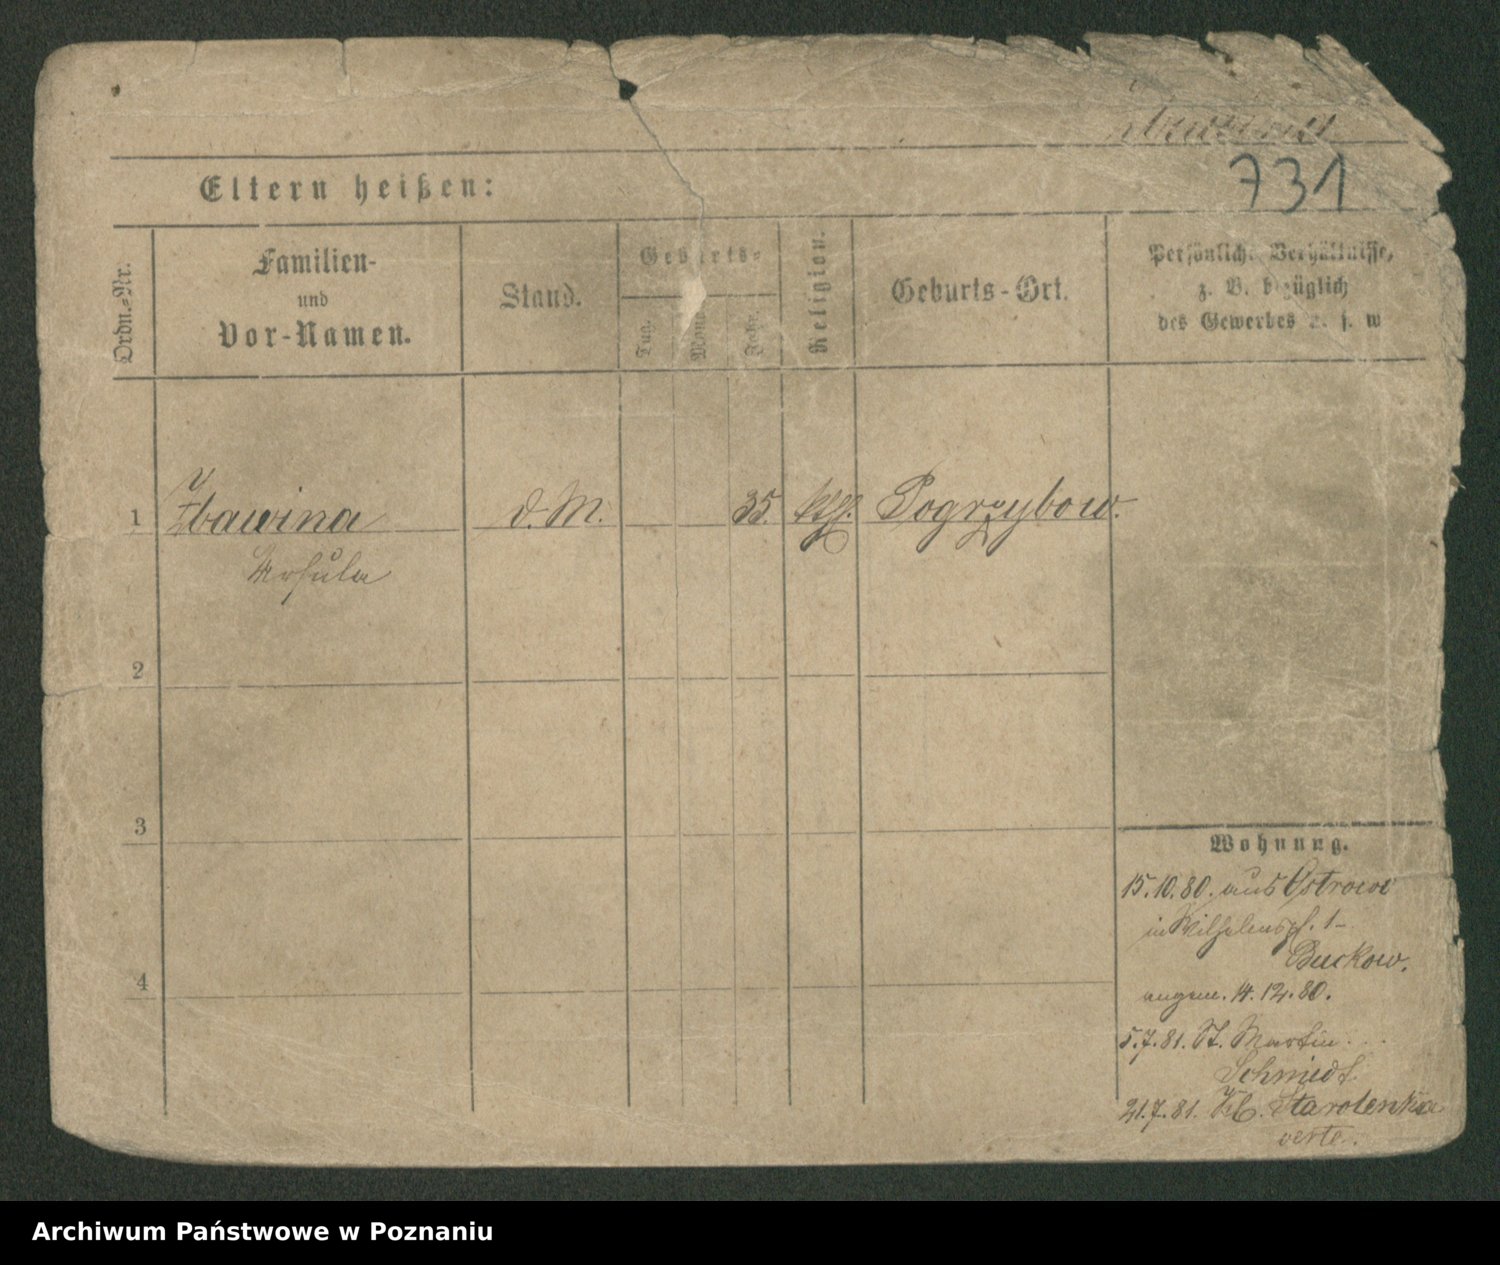 731
Eltern heißen:
Ordn.-Nr.
Familien-
und
Vor-Namen.
Stand.
Geburts-
Tag.
Mona
Jahr.
Religion.
Geburts-Ort.
Persönliche Verhältnisse,
z. B. bezüglich
des Gewerbes u. s. w
1 Zbawina d. M. 35. kth. Pogrzybow.
Ursula
2
3
4
Wohnung.
15.10.80. aus Ostrowo
in Wilhelmspl. 1-
Buckow.
angem. 14.12.80.
5.7.81. St. Martin
Schmidt
21.7.81. Kl. Starolenka
verte.
Archiwum Państwowe w Poznaniu